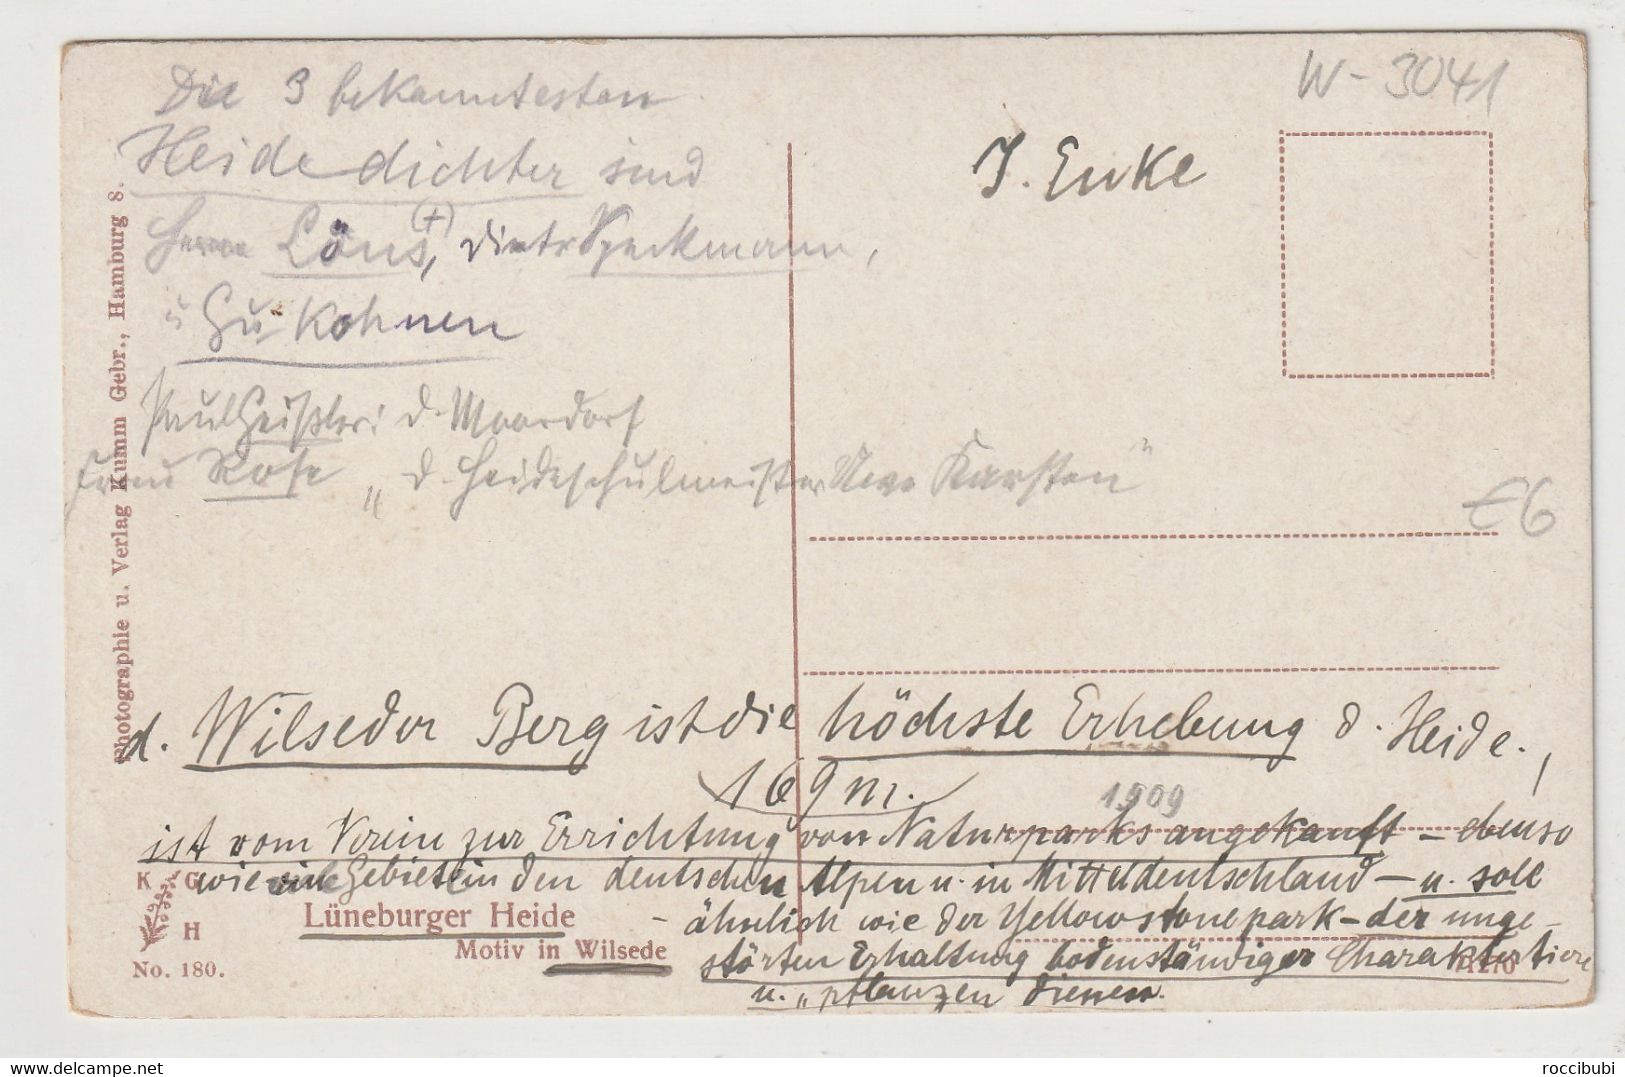 W-3041
Die 3 bekanntesten
Heidedichter sind
Löns (+), Speckmann,
u Kohnen
J. Enke
Paul Geißler: d. Moordorf
Frau Rose „d. Heideschulmeister Uwe Karsten"
€6
Photographie u. Verlag Kumm Gebr., Hamburg 8.
d. Wilseder Berg ist die höchste Erhebung d. Heide.,
169 m.
1909
ist vom Verein zur Errichtung von Naturparks angekauft – ebenso
wie ein Gebiet in den deutschen Alpen u. in Mitteldeutschland – u. soll
– ähnlich wie der Yellowstonepark – der unge-
störten Erhaltung bodenständiger Charaktertiere
u. „pflanzen dienen.
K G
H
No. 180.
Lüneburger Heide
Motiv in Wilsede
roccibubi